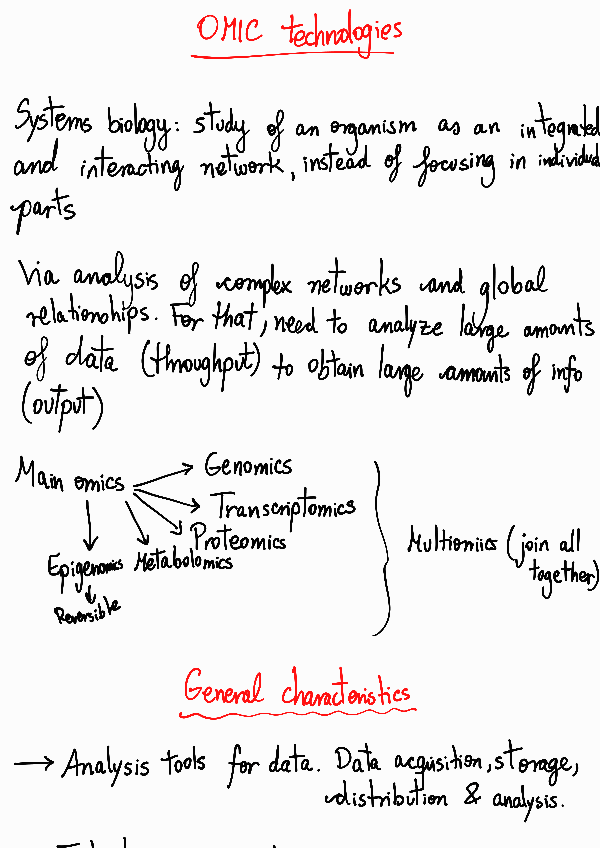 OMIC technologies
Systems biology: study of an organism as an integrated
and interacting network, instead of focusing in individual
parts
Via analysis of complex networks and global
relationships. For that, need to analyze large amounts
of data (throughput) to obtain large amounts of info
(output)
Main omics
Genomics
Transcriptomics
Proteomics
Epigenomics Metabolomics
Reversible
Multiomics (join all
together)
General characteristics
→ Analysis tools for data. Data acqusition, storage,
distribution & analysis.